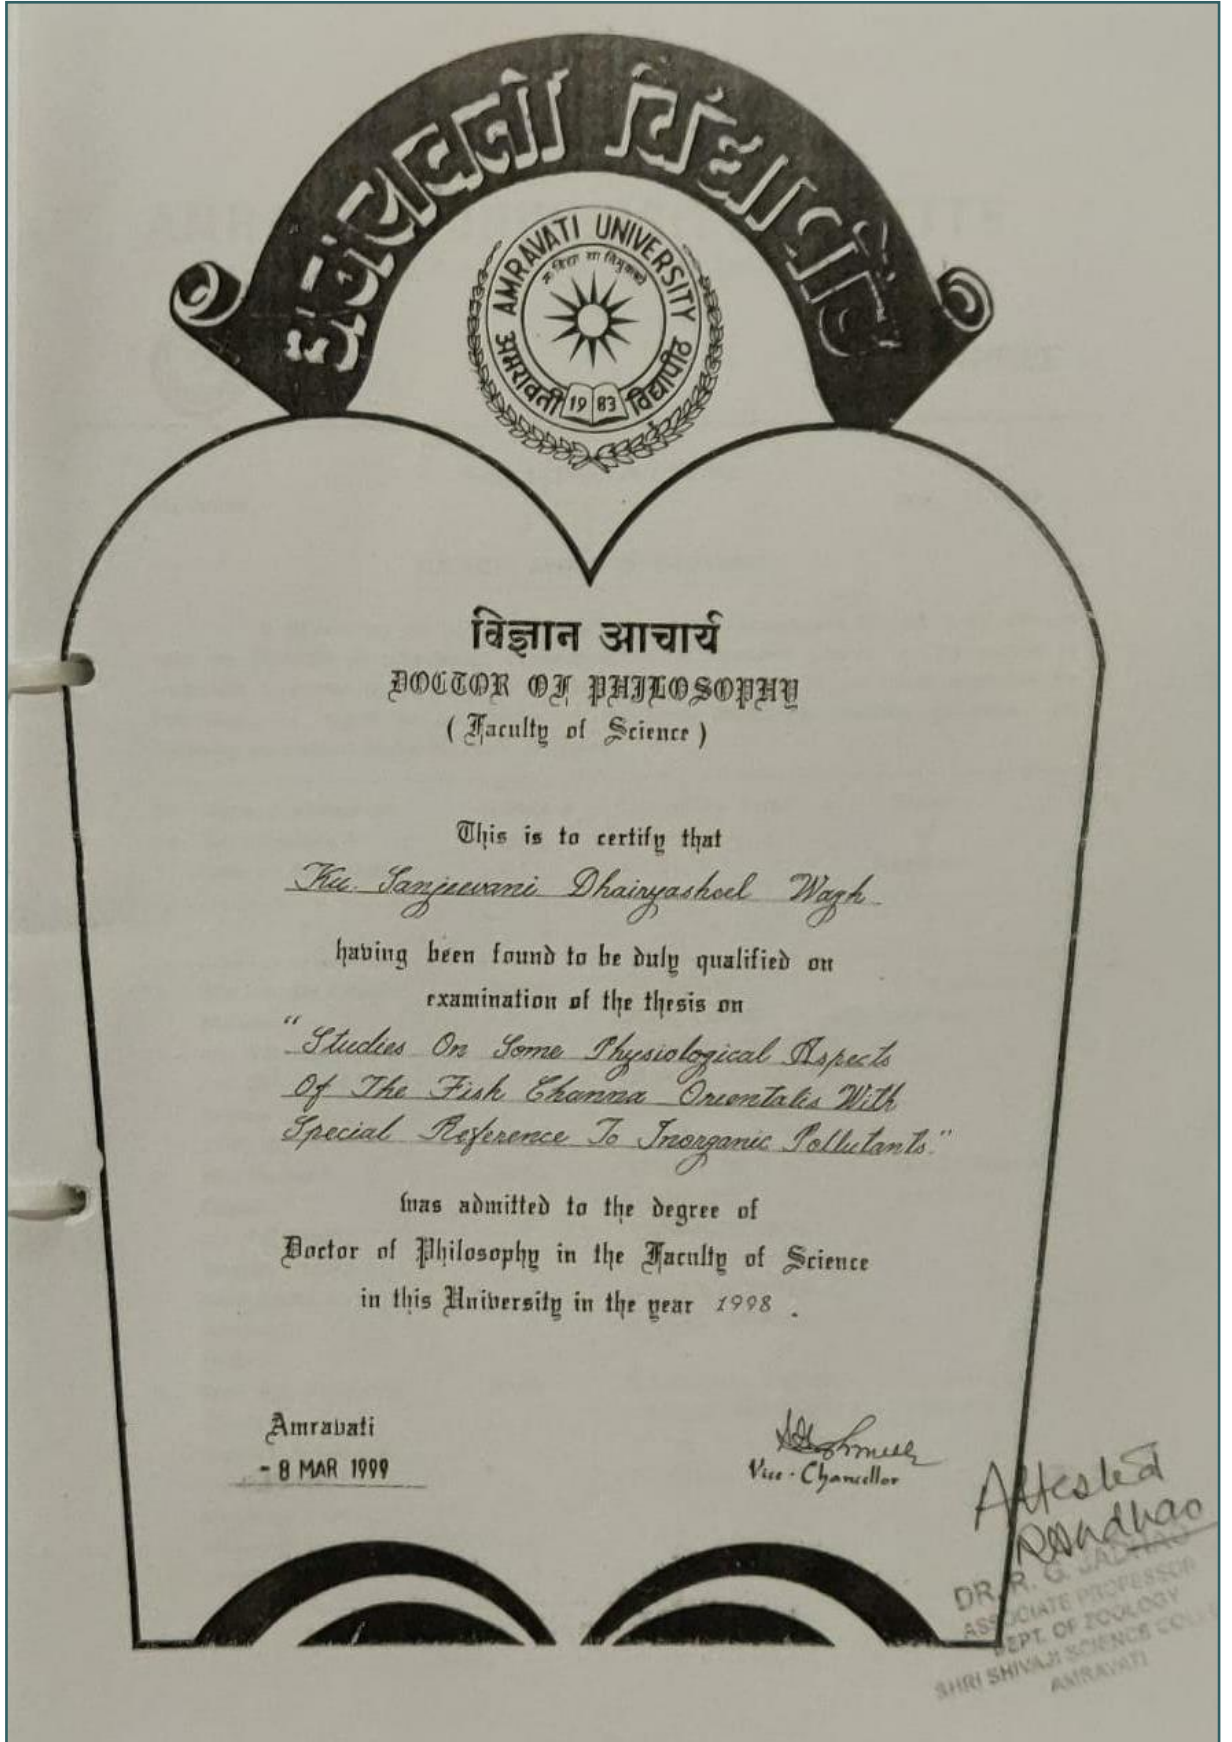 अमरावती विद्यापीठ
AMRAVATI UNIVERSITY
सा विद्या या विमुक्तये
अमरावती विद्यापीठ
19 83
विज्ञान आचार्य
DOCTOR OF PHILOSOPHY
( Faculty of Science )
This is to certify that
Ku. Sanjeevani Dhairyasheel Wagh
having been found to be duly qualified on
examination of the thesis on
"Studies On Some Physiological Aspects
Of The Fish Channa Orientalis With
Special Reference To Inorganic Pollutants."
was admitted to the degree of
Doctor of Philosophy in the Faculty of Science
in this University in the year 1998 .
Amravati
- 8 MAR 1999
Vice-Chancellor
Attested
DR. R. G. JADHAO
ASSOCIATE PROFESSOR
DEPT. OF ZOOLOGY
SHRI SHIVAJI SCIENCE
AMRAVATI